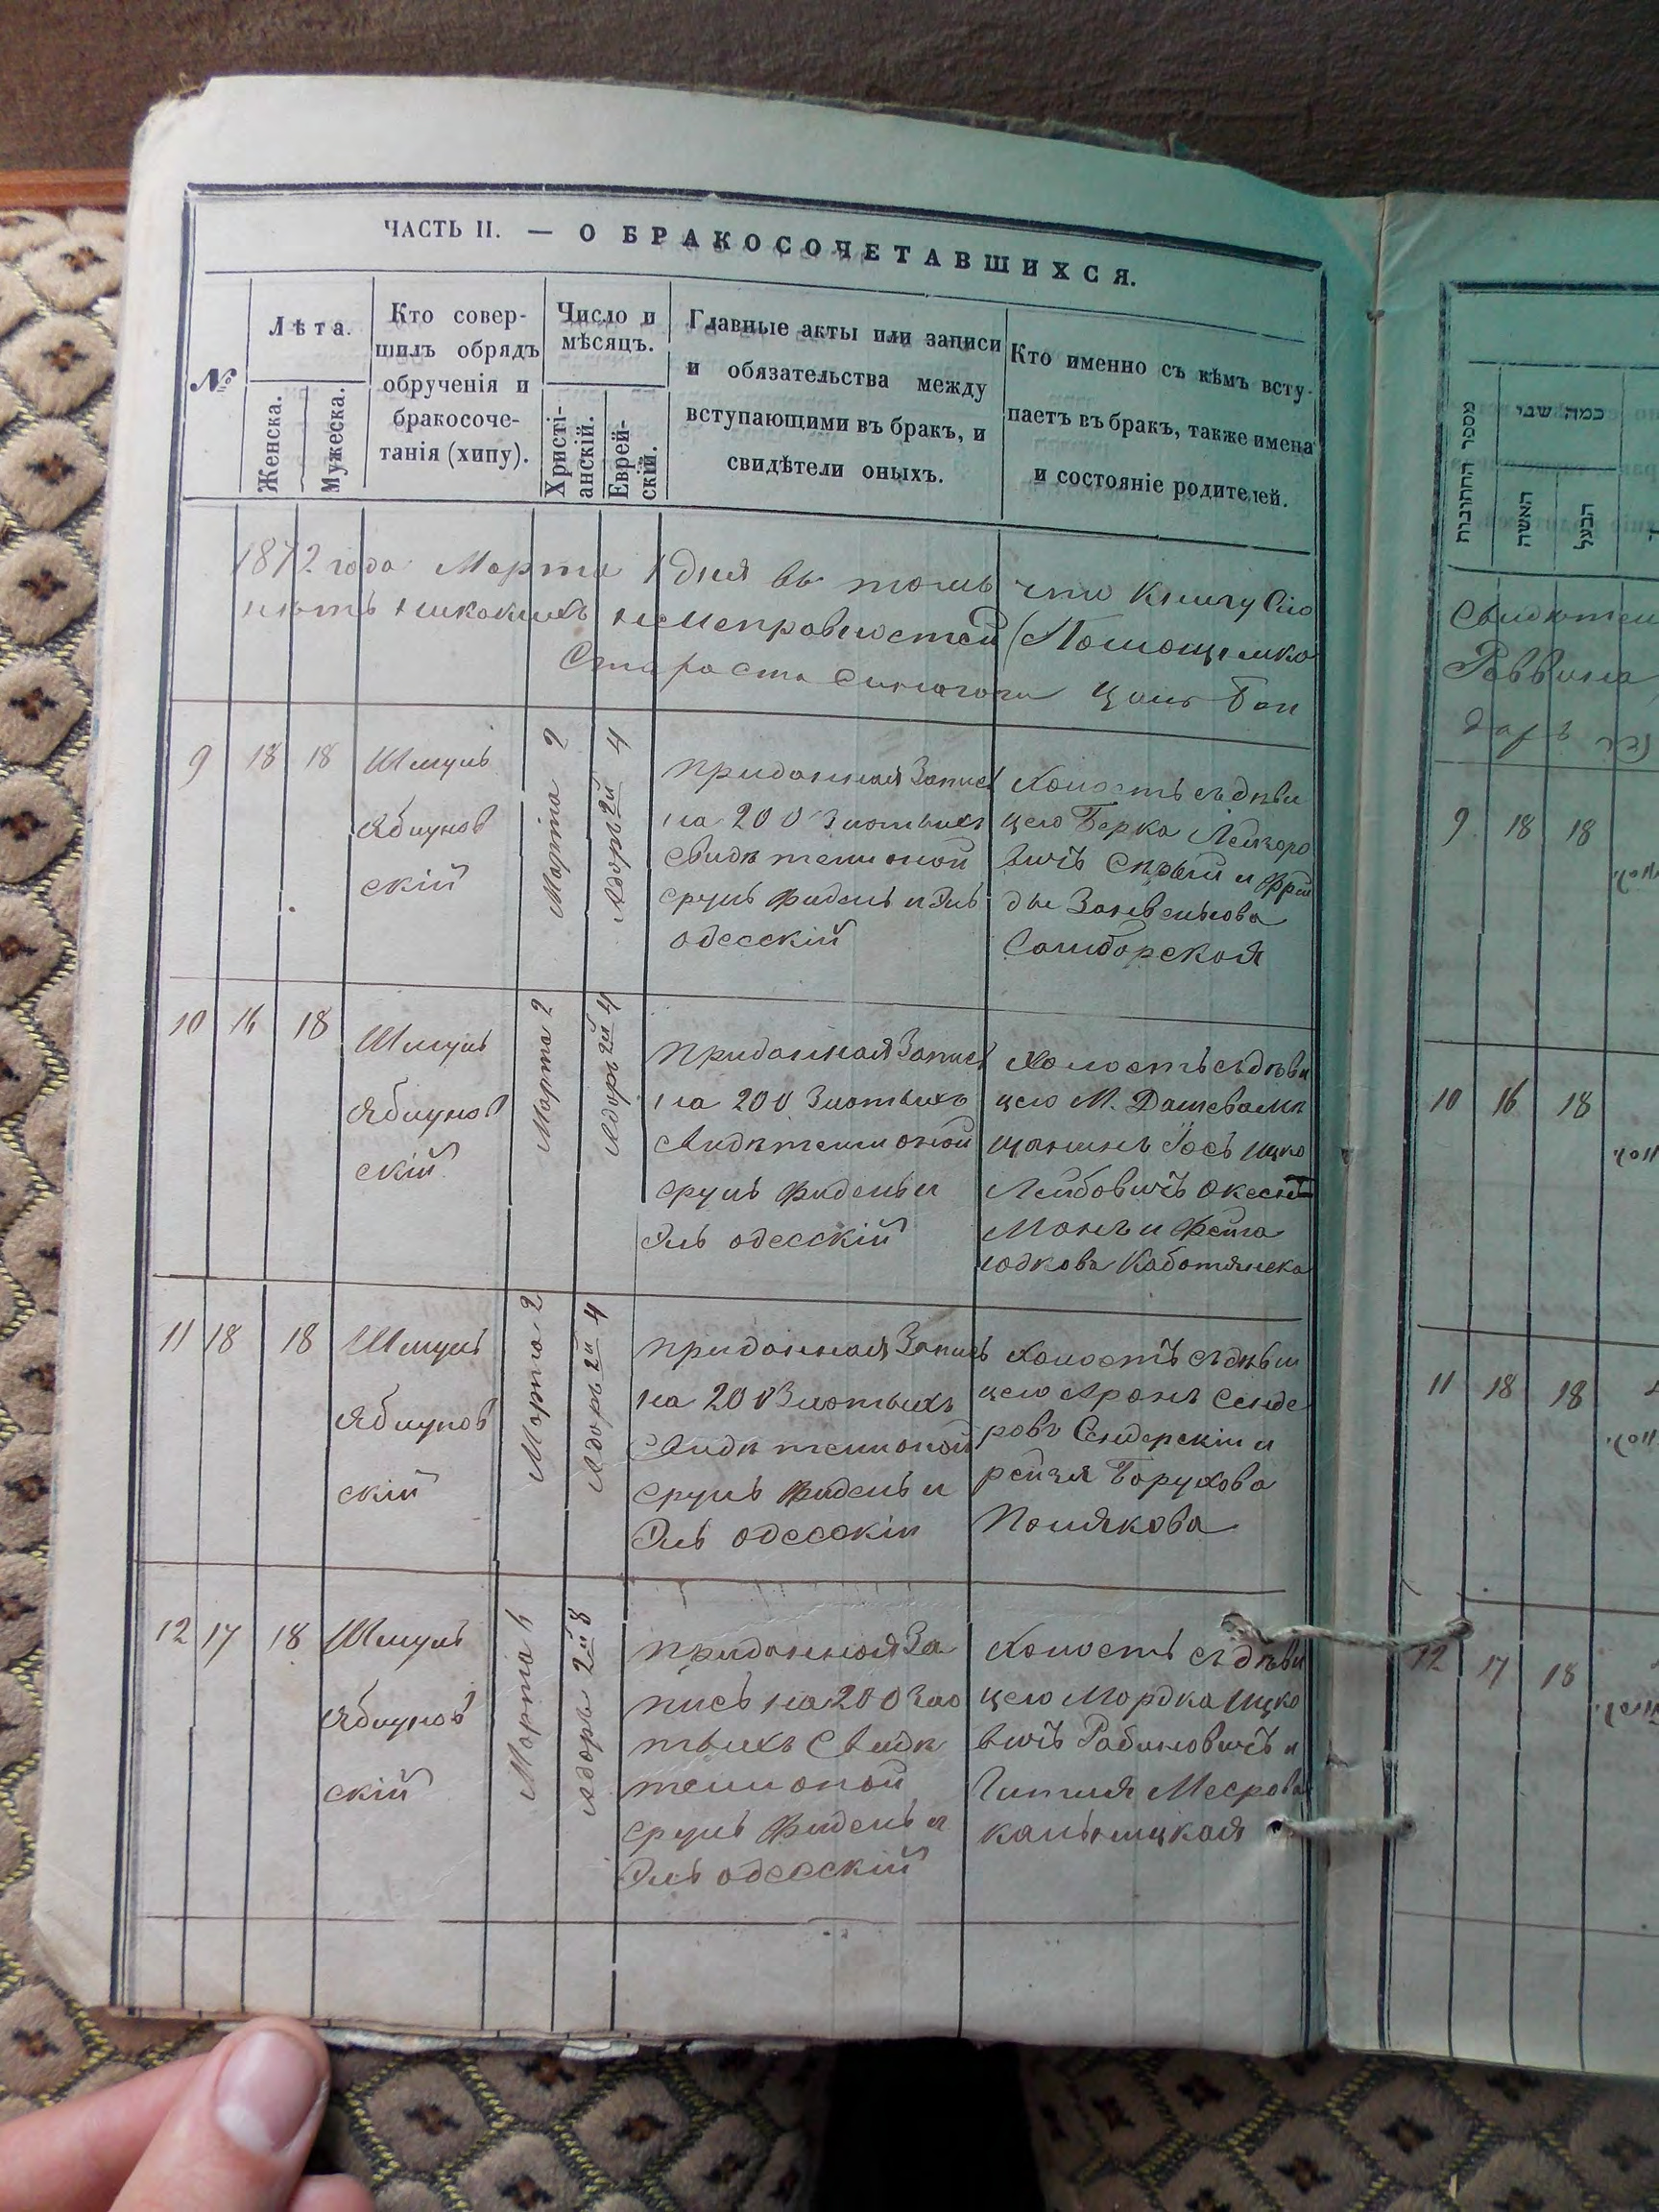 ЧАСТЬ II. — О БРАКОСОЧЕТАВШИХСЯ.
№
Лѣта.
Женска.
Мужеска.
Кто совер-
шилъ обрядъ
обрученія и
бракосоче-
танія (хипу).
Число и
мѣсяцъ.
Христі-
анскій.
Еврей-
скій.
Главные акты или записи
и обязательства между
вступающими въ бракъ, и
свидѣтели оныхъ.
Кто именно съ кѣмъ всту-
паетъ въ бракъ, также имена
и состояніе родителей.
1872 года Марта 1 дня въ томъ что Книгу Сію
нѣтъ никакихъ неисправностей
Староста Синагоги
9
18
18
Шмуль
Яблунов
скій
Марта 2
Адаръ 2й 4
Приданная Запись
на 200 Злотыхъ
Свидѣтели оной
Сруль Фидель и Эль
одесскій
Холостъ съ дѣви
цею Берко Лейзеро
вичъ и Фрей
ды Занвелева
Самборская
10
16
18
Шмуль
Яблунов
скій
Марта 2
Адаръ 2й 4
Приданная Запись
на 200 Злотыхъ
Свидѣтели оной
Сруль Фидель и
Эль одесскій
Холостъ съ дѣви
цею М. Дашева мѣ
щанинъ Іосъ Ицко
Лейбовичъ
Манъ и Фейга
юдкова
11
18
18
Шмуль
Яблунов
скій
Марта 2
Адаръ 2й 4
Приданная Запись
на 200 Злотыхъ
Свидѣтели оной
Сруль Фидель и
Эль одесскій
Холостъ съ дѣви
цею Аронъ Сенде
ровъ Сендерскій и
рейзя Борухова
Полякова
12
17
18
Шмуль
Яблунов
скій
Марта 6
Адаръ 2й 8
Приданная За
пись на 200 Зло
тыхъ Свидѣ
тели оной
Сруль Фидель и
Эль одесскій
Холостъ съ дѣви
цею Мордка Ицко
вичъ Рабиновичъ и
Гитля Меерова
Кальницкая
מספר החתונות
כמה שני
האשה
הבעל
Свидѣтели
Раввина
9
18
18
10
16
18
11
18
18
12
17
18